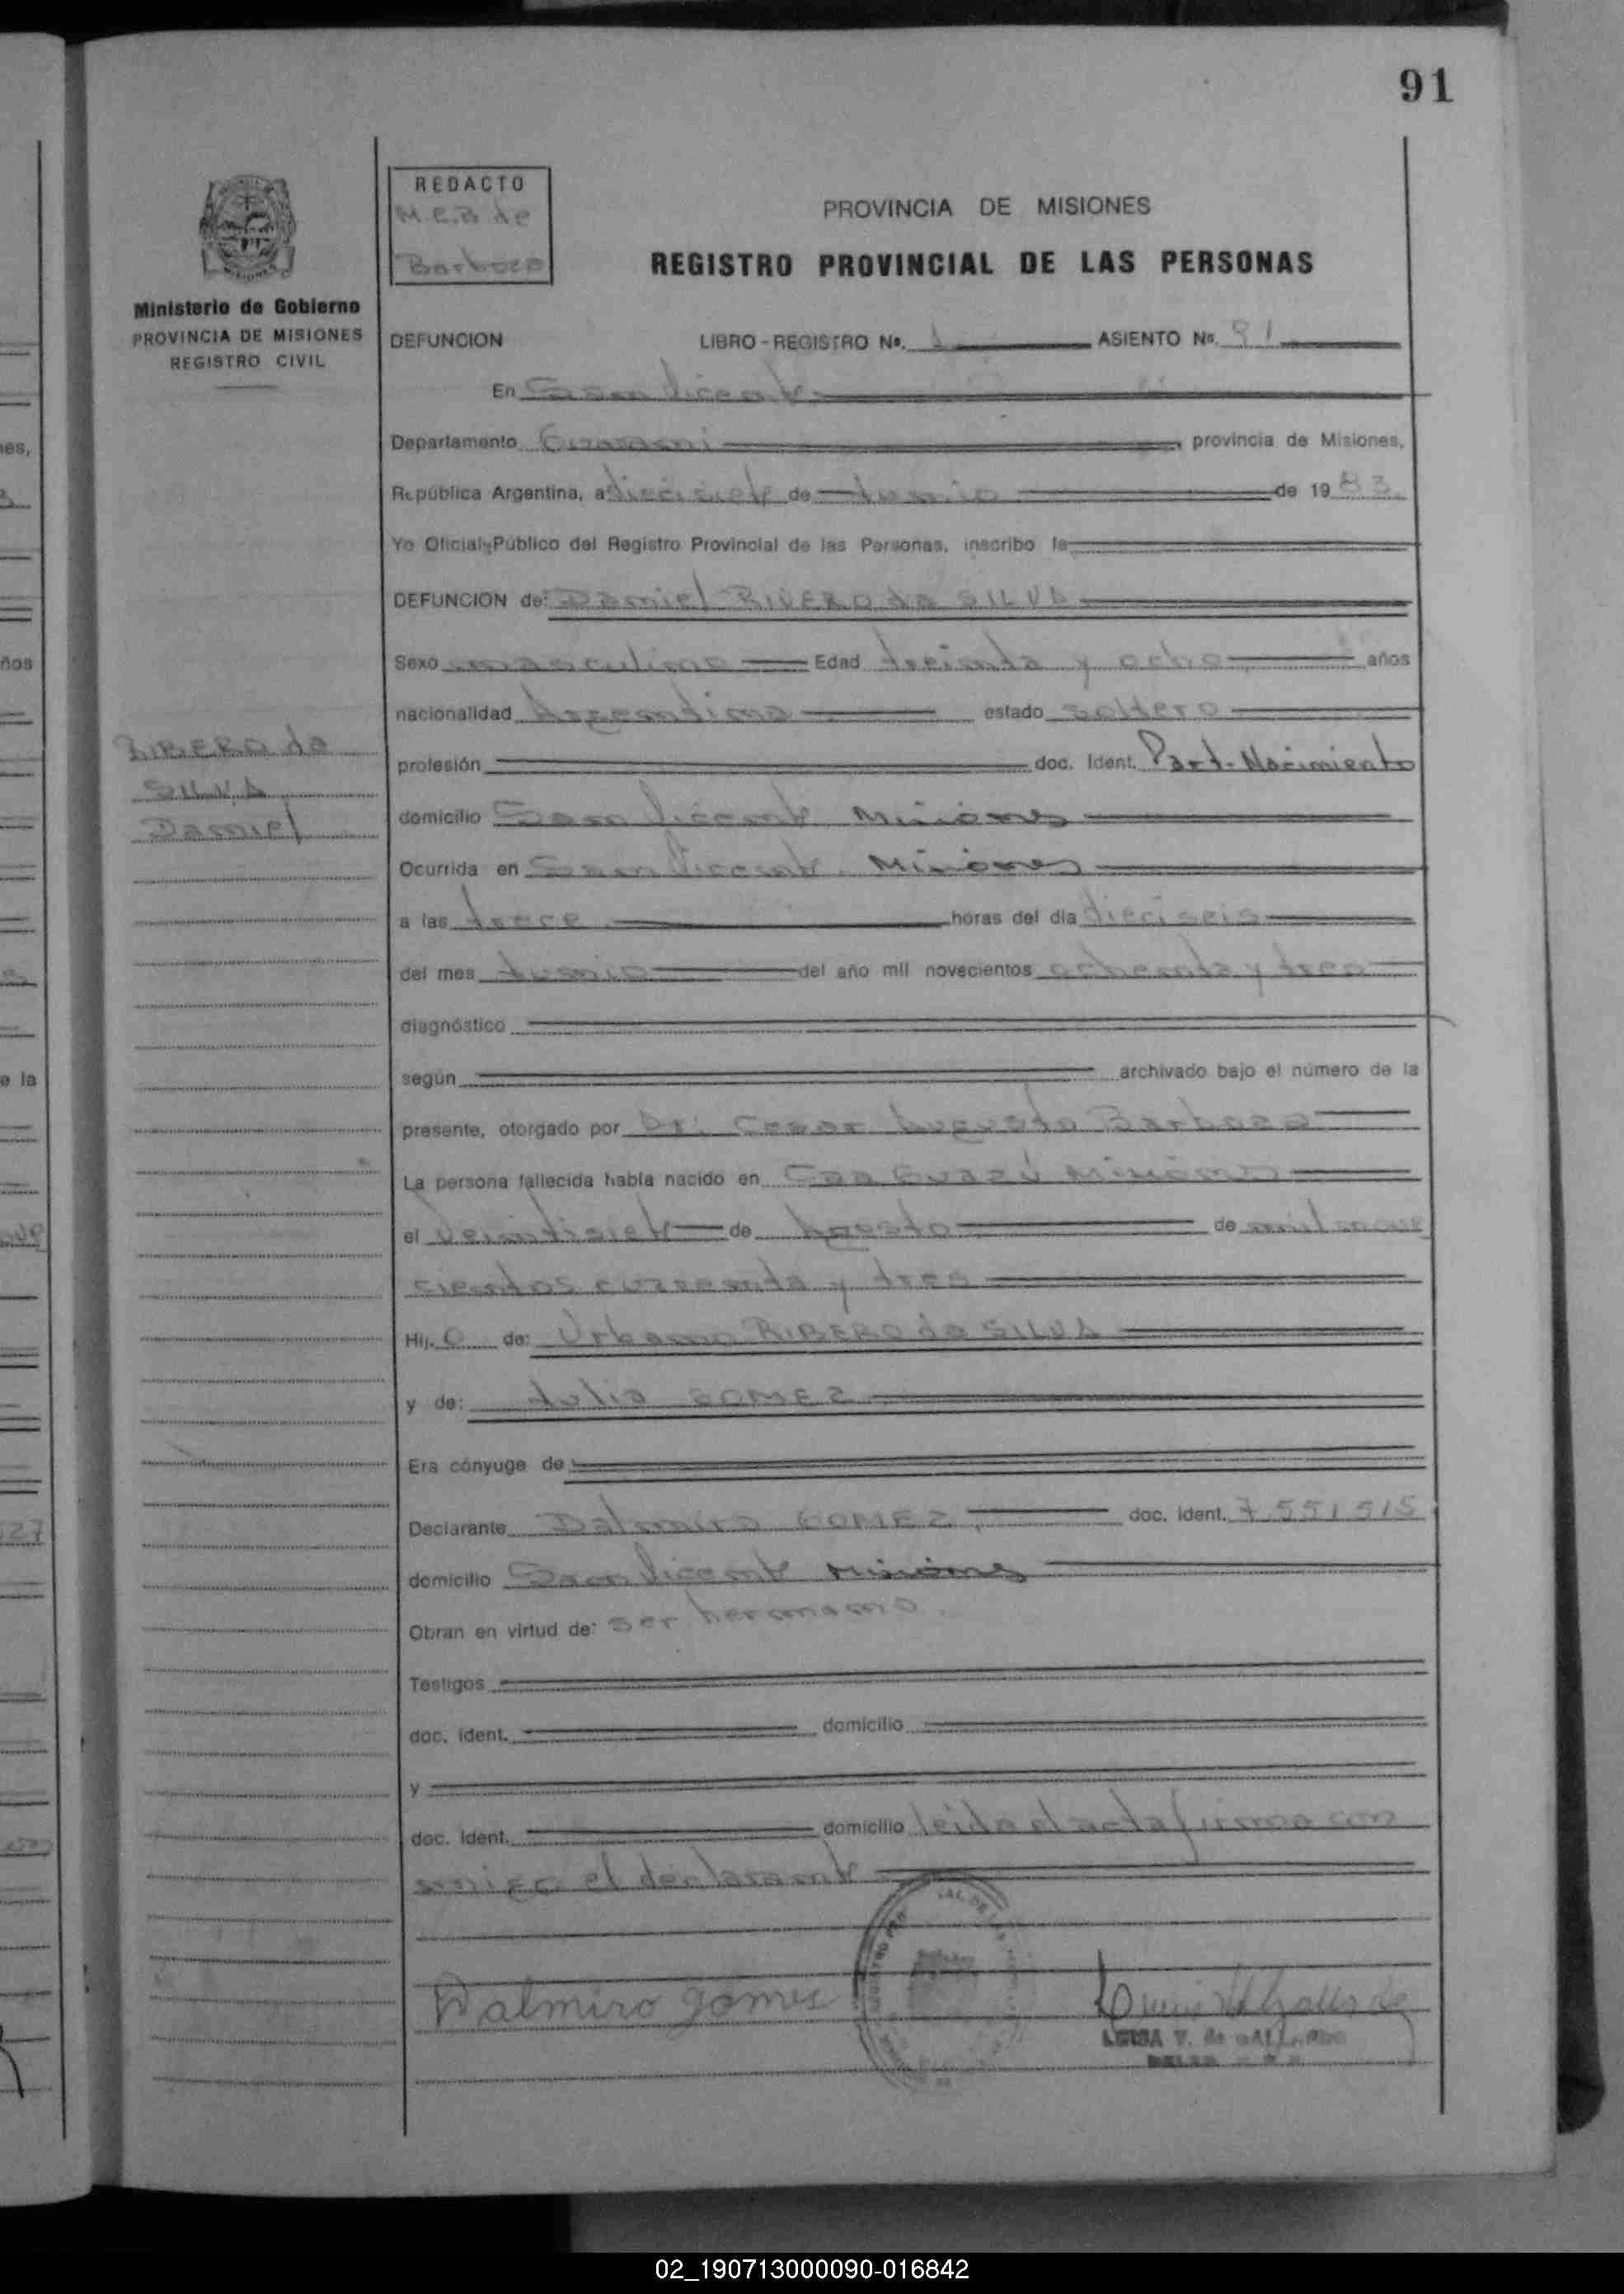 91
REDACTO
M.E.B de
Barboza
PROVINCIA DE MISIONES
REGISTRO PROVINCIAL DE LAS PERSONAS
Ministerio de Gobierno
PROVINCIA DE MISIONES
REGISTRO CIVIL
DEFUNCION LIBRO - REGISTRO No. 1 ASIENTO No. 91
En San Vicente
Departamento Guarani, provincia de Misiones,
República Argentina, a diecisiete de Junio de 1983.
Yo Oficial Público del Registro Provincial de las Personas, inscribo la
DEFUNCION de: Daniel RIVERO da SILVA
Sexo masculino Edad treinta y ocho años
nacionalidad Argentina estado soltero
RIBERO da
SILVA
Daniel
profesión doc. Ident. Part. Nacimiento
domicilio San Vicente Misiones
Ocurrida en San Vicente. Misiones
a las trece horas del día dieciseis
del mes Junio del año mil novecientos ochenta y tres
diagnóstico
según archivado bajo el número de la
presente, otorgado por Dr: Cesar Augusto Barboza
La persona fallecida había nacido en Caa Guazú Misiones
el Veintisiete de Agosto de mil nove
cientos cuarenta y tres
Hij. o de: Urbano RIBERO da SILVA
y de: Julia GOMEZ
Era cónyuge de
Declarante Dalmiro GOMEZ, doc. ident. 7.551.515
domicilio San Vicente Misiones
Obran en virtud de: ser hermano.
Testigos
doc. ident. domicilio
y
doc. ident. domicilio leida el acta firma con
migo el declarante
Dalmiro gomes
LUISA V. de
02_190713000090-016842